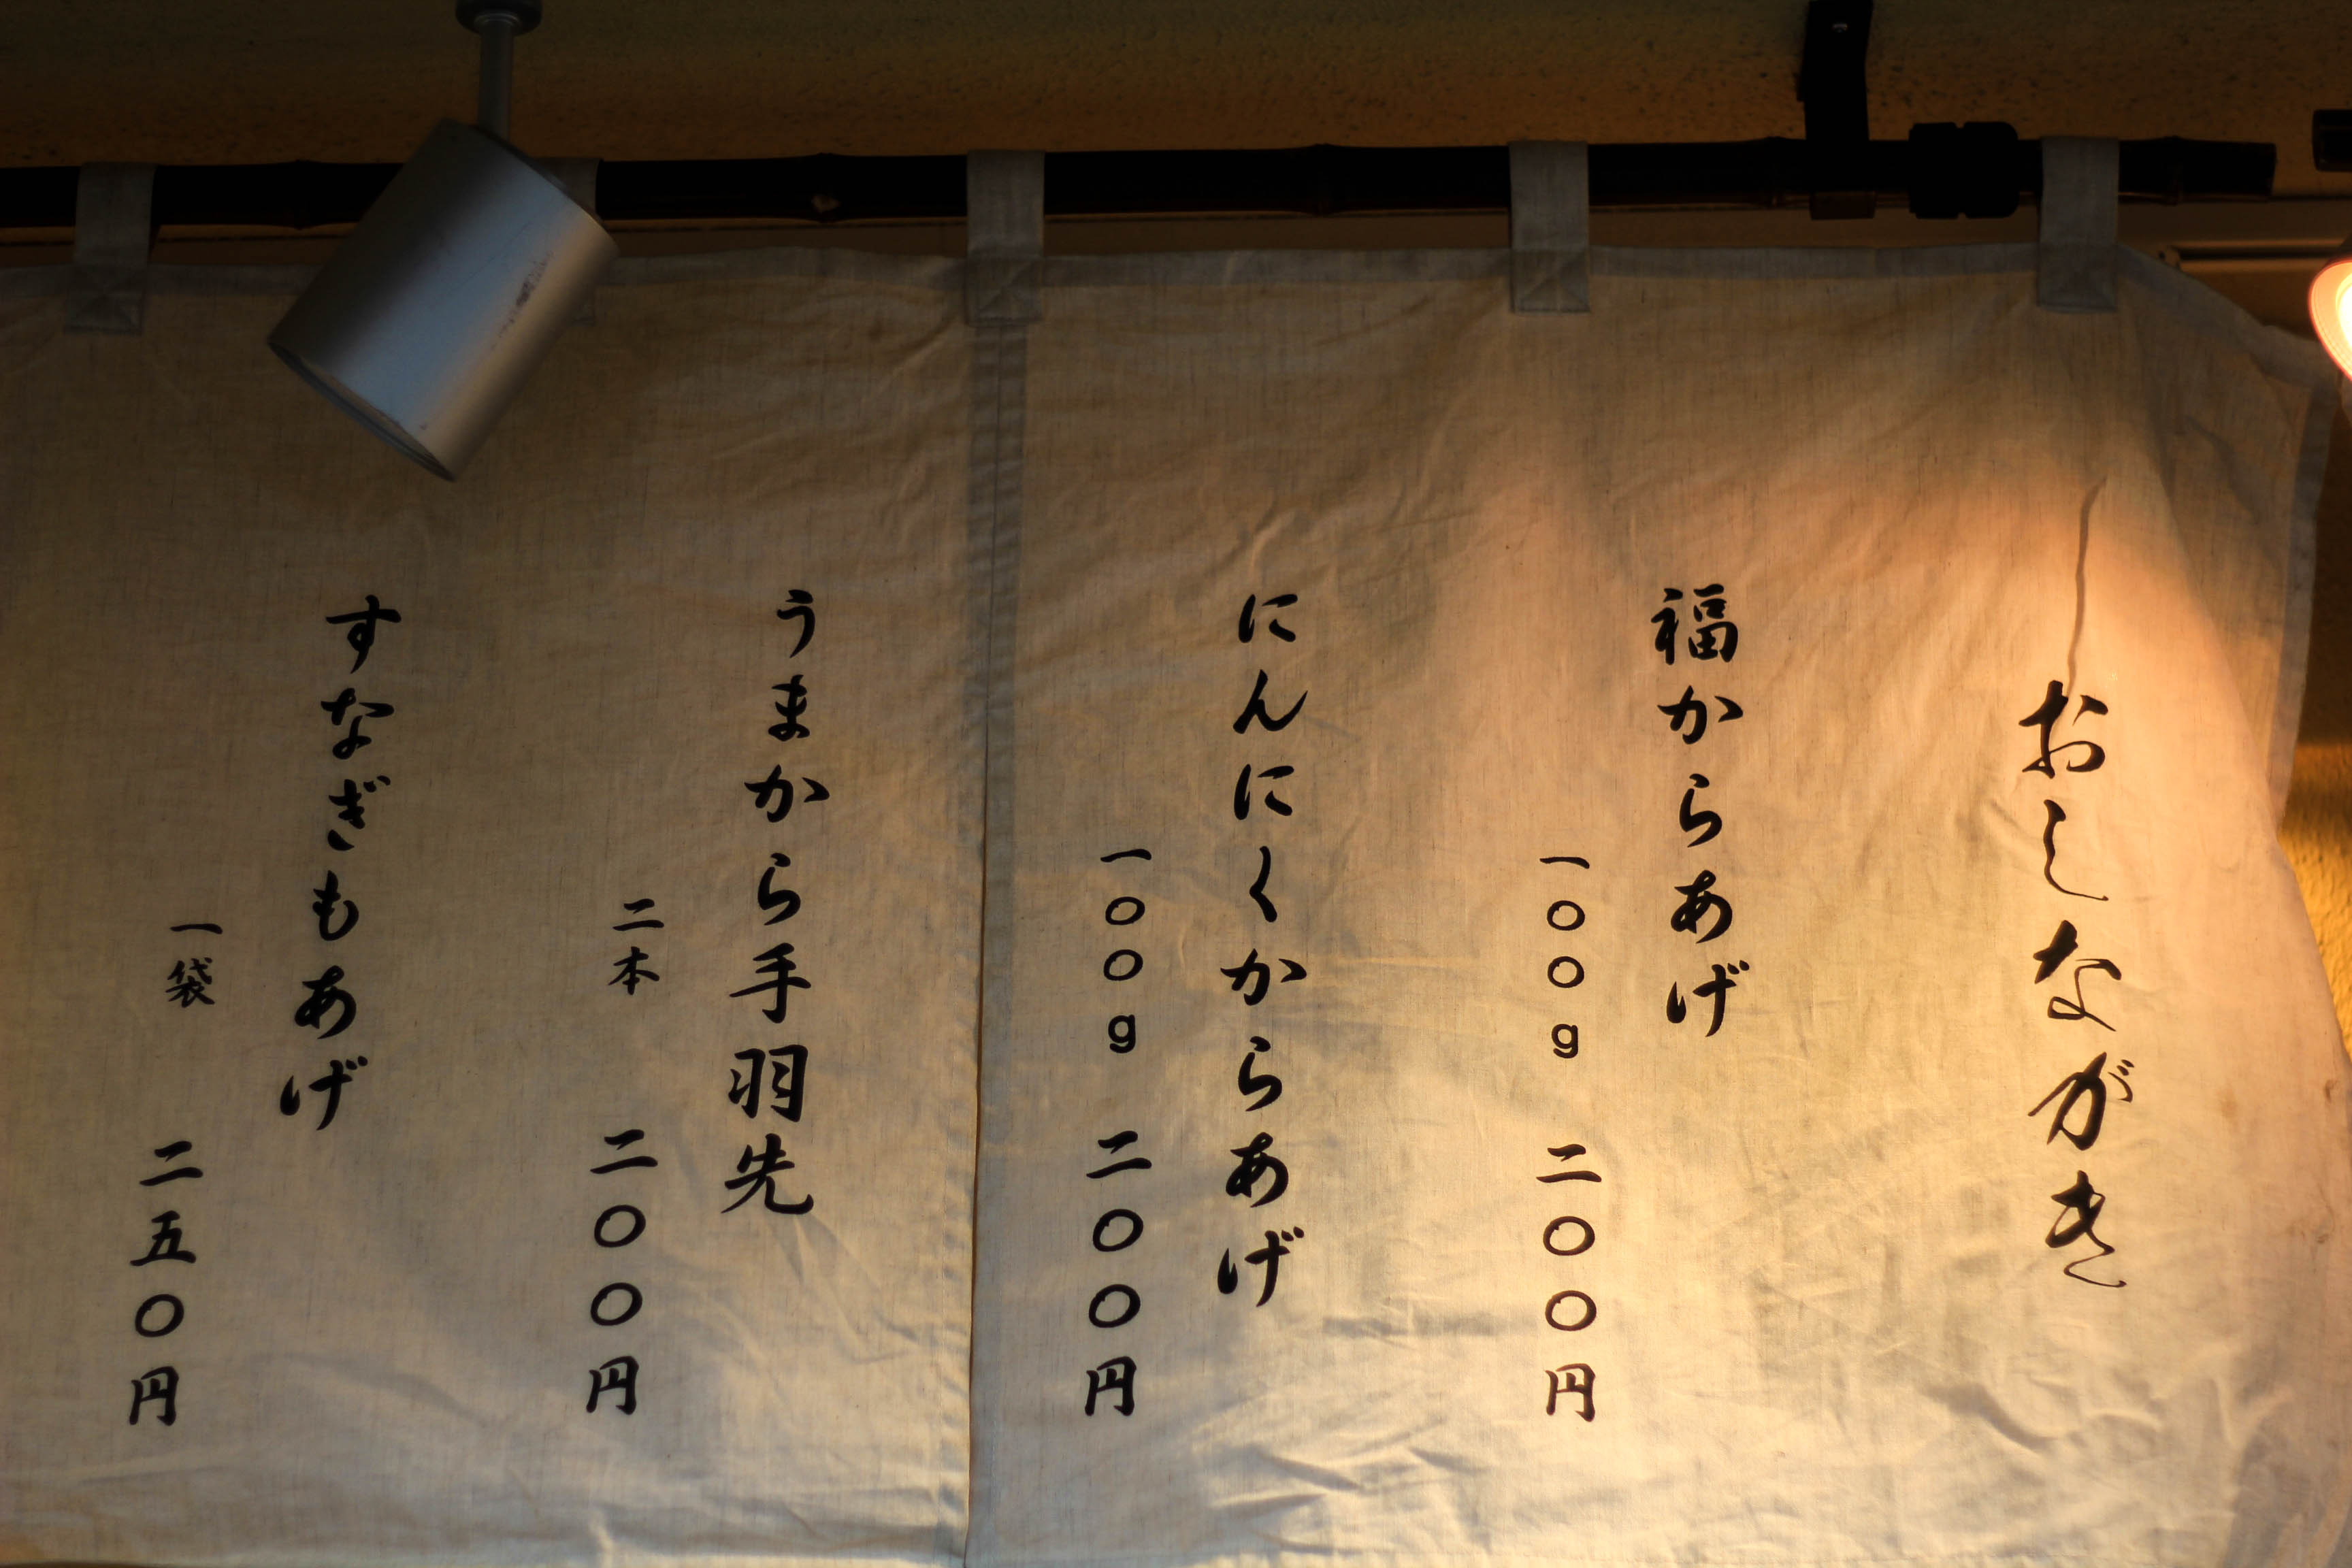 おしながき
福からあげ
一〇〇g 二〇〇円
にんにくからあげ
一〇〇g 二〇〇円
うまから手羽先
二本 二〇〇円
すなぎもあげ
一袋 二五〇円